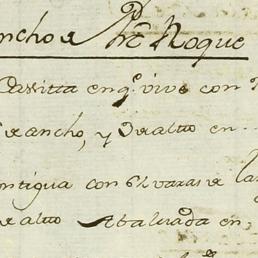 ancho de Sn Roque
Casitta en q.e vive con
de ancho, y de alto en
antigua con 6½ varas de la
de alto Abaluada en